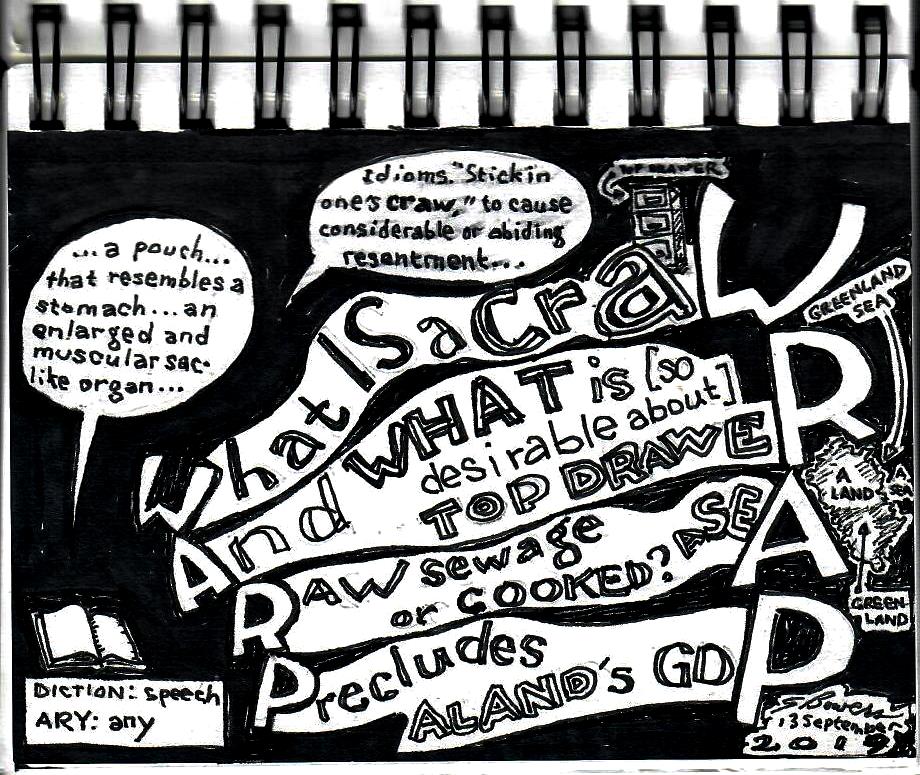 TOP DRAWER
Idioms. "Stick in
one's craw," to cause
considerable or abiding
resentment...
...a pouch...
that resembles a
stomach... an
enlarged and
muscular sac-
like organ...
What IS a CraW
And WHAT is [so
desirable about]
TOP DRAWER
RAW sewage
or COOKED? A SEA
Precludes
ALAND'S GDP
GREENLAND
SEA
A
LAND
A
SEA
GREEN-
LAND
DICTION: speech
ARY: any
13 September
2019